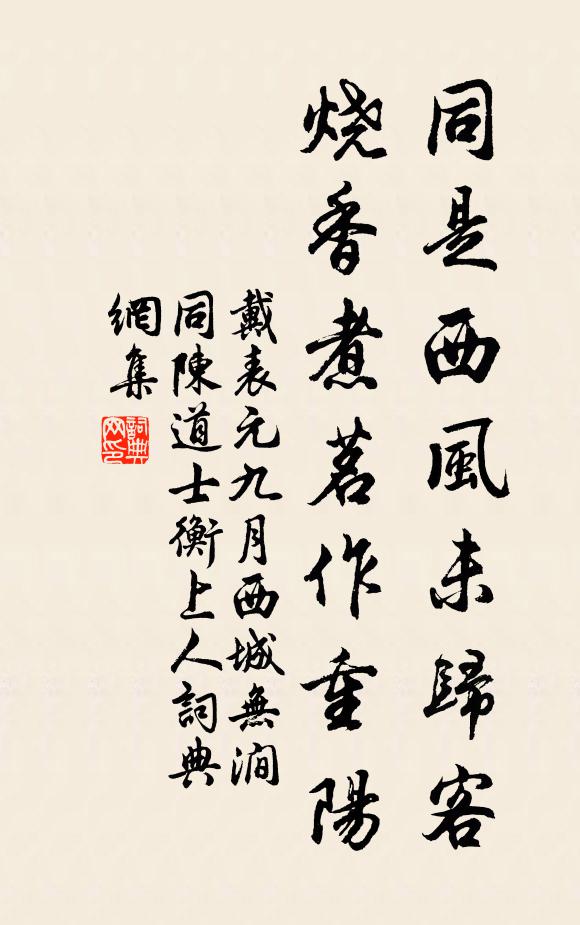 同是西風未歸客
烧香煮茗作重陽
戴表元九月西城無澗
同陳道士衡上人詞典
網集
詞典
网印